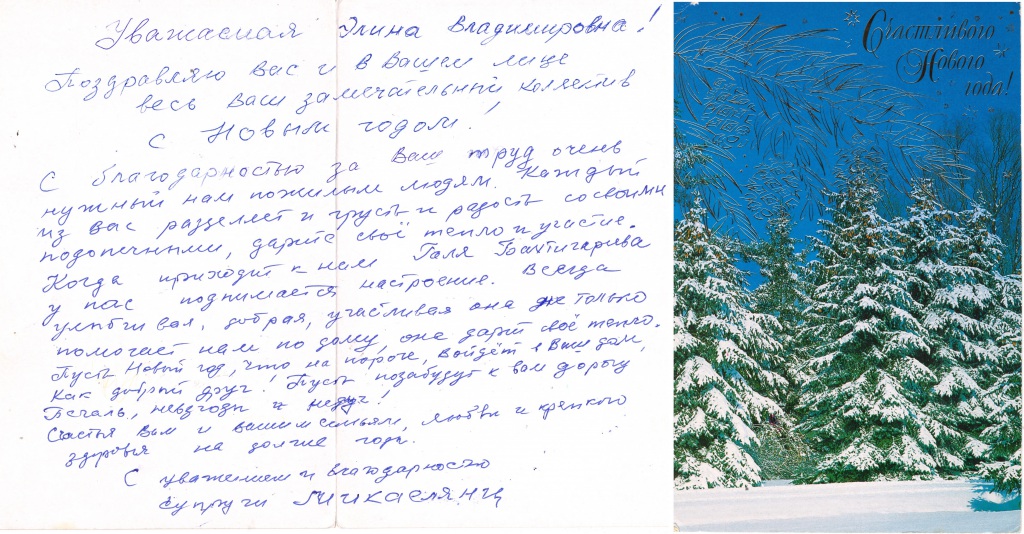 Уважаемая Элина Владимировна!
Поздравляю Вас и в Вашем лице
весь Ваш замечательный коллектив
с Новым годом!
С благодарностью за Ваш труд очень
нужный нам пожилым людям. Каждый
из вас разделяет и грусть и радость со своими
подопечными, дарите своё тепло и участие.
Когда приходит к нам Галя
у нас поднимается настроение. Всегда
улыбчивая, добрая, участливая она не только
помогает нам по дому, она дарит своё тепло.
Пусть Новый год, что на пороге, войдёт в Ваш дом,
как добрый друг! Пусть позабудут к вам дорогу
Печаль, невзгоды и недуг!
Счастья Вам и вашим семьям, любви и крепкого
здоровья на долгие годы.
С уважением и благодарностью
супруги Микаелянц
Счастливого
Нового
года!